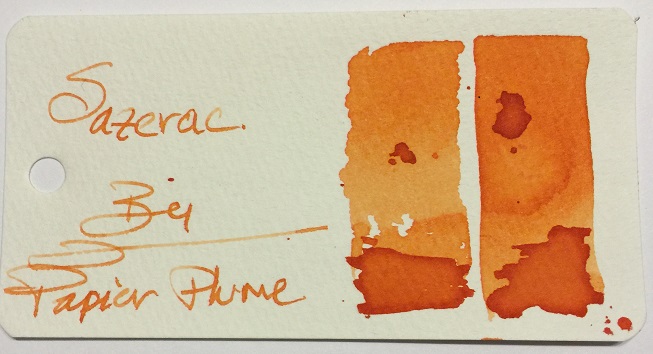 Sazerac.
By
Papier Plume